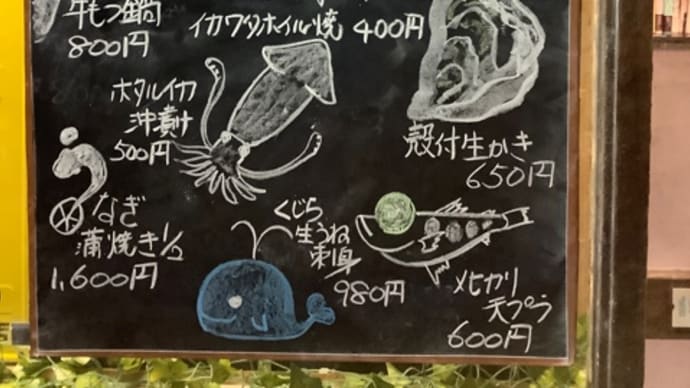 牛もつ鍋
800円
イカワタホイル焼 400円
ホタルイカ
沖漬け
500円
殻付生かき
650円
うなぎ
蒲焼き1/2
1,600円
くじら
生うね
刺身
980円
メヒカリ
天プラ
600円